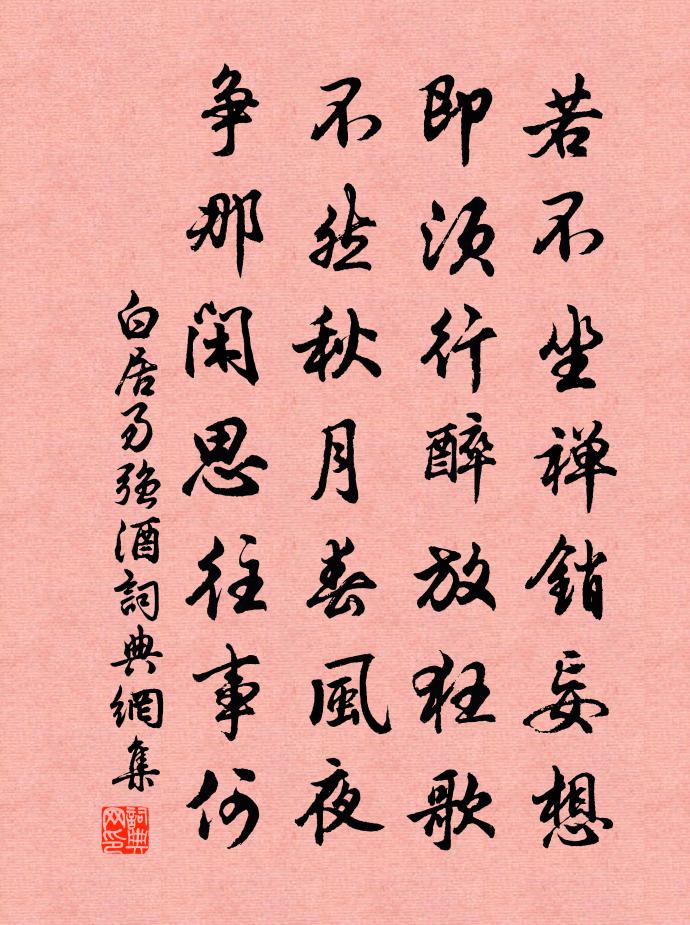 若不坐禅銷妄想
即须行醉放狂歌
不然秋月春風夜
争那闲思往事何
白居易強酒詞典網集
詞典网印